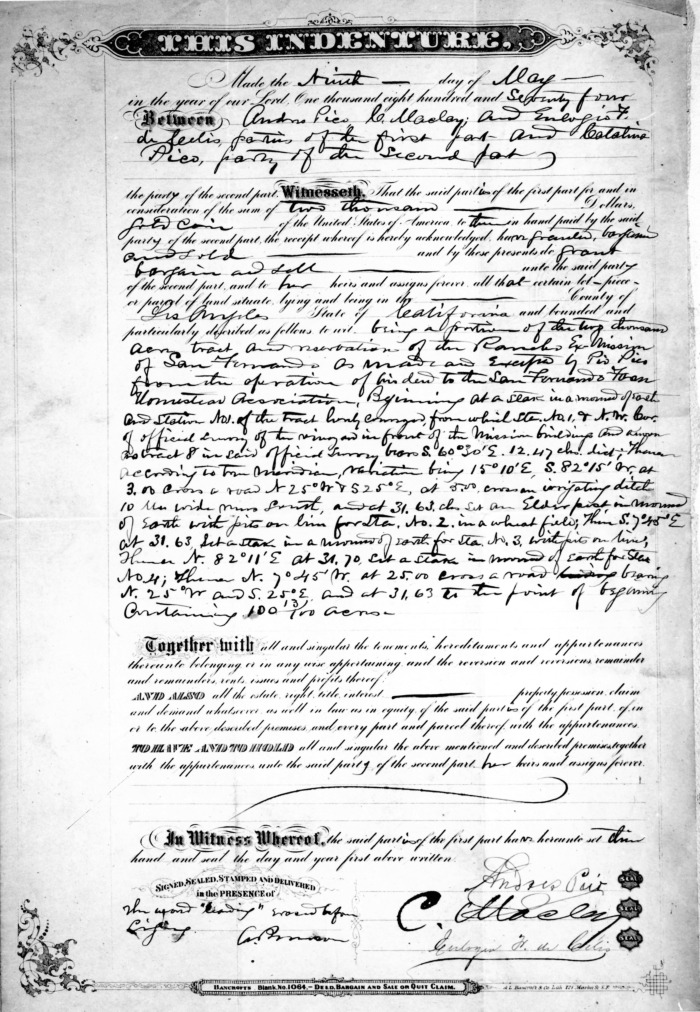 THIS INDENTURE,
Made the Ninth — day of May —
in the year of our Lord, One thousand eight hundred and Seventy four
Between Andres Pico C. Maclay; and Eulogio F.
de Celis, parties of the first part and Catalina
Pico, party of the second part
the party of the second part, Witnesseth, That the said parties of the first part for and in
consideration of the sum of two thousand — Dollars,
gold coin of the United States of America to them in hand paid by the said
party of the second part, the receipt whereof is hereby acknowledged, have granted, bargained
and sold — and by these presents do grant
bargain and sell — unto the said party
of the second part, and to her heirs and assigns forever, all that certain lot-piece-
or parcel of land situate, lying and being in the — County of
Los Angeles State of California and bounded and
particularly described as follows to wit: being a portion of the two thousand
acre tract and reservation of the Rancho Ex Mission
of San Fernando as made and Excepted by Pio Pico
from the operation of his deed to the San Fernando Farm
Homestead Association, Beginning at a stake in a mound of earth
and Station No1. of the tract hereby conveyed from which Sta. No. 1, & N.W. Cor.
of official survey of the vineyard in front of the Mission buildings and
as tract 8 in said official Survey bears S. 60°30'E. 12.47 chs. dist; Thence
according to true Meridian, variation being 15°10'E, S. 82°15' W. at
3.00 cross a road N 25° W & S 25° E, at 5.00 cross an irrigating ditch
10 lks wide runs South, and at 31.63 chs set an Elder post in mound
of Earth with pits on line for Sta. No. 2. in a wheat field; Thence S. 7°45' E
at 31.63 Set a stake in a mound of earth for Sta. No. 3, with pits on line;
Thence N. 82°11'E at 31.70 set a stake in mound of earth for Sta
No 4; Thence N. 7°45' W. at 25.00 cross a road leading bearing
N. 25° W and S. 25° E, and at 31.63 to the point of beginning
Containing 100 13/100 acres—
Together with all and singular the tenements, hereditaments and appurtenances
thereunto belonging or in any wise appertaining and the reversion and reversions, remainder
and remainders, rents, issues and profits thereof.
AND ALSO all the estate, right, title, interest — property, possession, claim
and demand whatsoever, as well in law as in equity, of the said parties of the first part, of, in
or to the above described premises, and every part and parcel thereof, with the appurtenances.
TO HAVE AND TO HOLD all and singular the above mentioned and described premises, together
with the appurtenances, unto the said party of the second part, her heirs and assigns forever.
In Witness Whereof, the said parties of the first part have hereunto set their
hand and seal the day and year first above written.
SIGNED, SEALED, STAMPED AND DELIVERED
in the PRESENCE of
The word "leading" erased before
signing
A. Brunson
Andres Pico SEAL
C. Maclay SEAL
Eulogio F. de Celis SEAL
BANCROFT'S Blank No. 1064.—DEED, BARGAIN AND SALE OR QUIT CLAIM.
A.L. Bancroft & Co. Lith. 721 Market St. S.F.